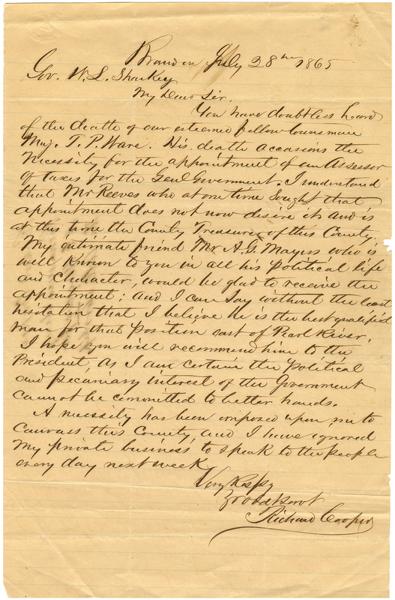 Brandon July 28th 1865
Gov. W. L. Sharkey
My Dear Sir.
You have doubtless heard
of the death of our esteemed fellow Countryman
Maj. T. P. Ware. His death accasions the
Necessity for the appointment of an Assessor
of taxes for the Genl Government. I understand
that Mr Reeves who at one time sought that
appointment does not now desire it and is
at this time the County Treasurer of this County.
My intimate friend Mr. A. G. Mayers who is
well Known to you in all his Political life
and Character, would be glad to receive the
appointment; and I can say without the least
hesitation that I believe he is the best qualified
man for that Position east of Pearl River.
I hope you will recommend him to the
President, as I am certain the Political
and pecuniary interest of the Government
cannot be committed to better hands.
A necessity has been imposed upon me to
canvass this County, and I have ignored
My private business to speak to the people
every day next week
Very Respy
Yr obd Servt
Richard Cooper